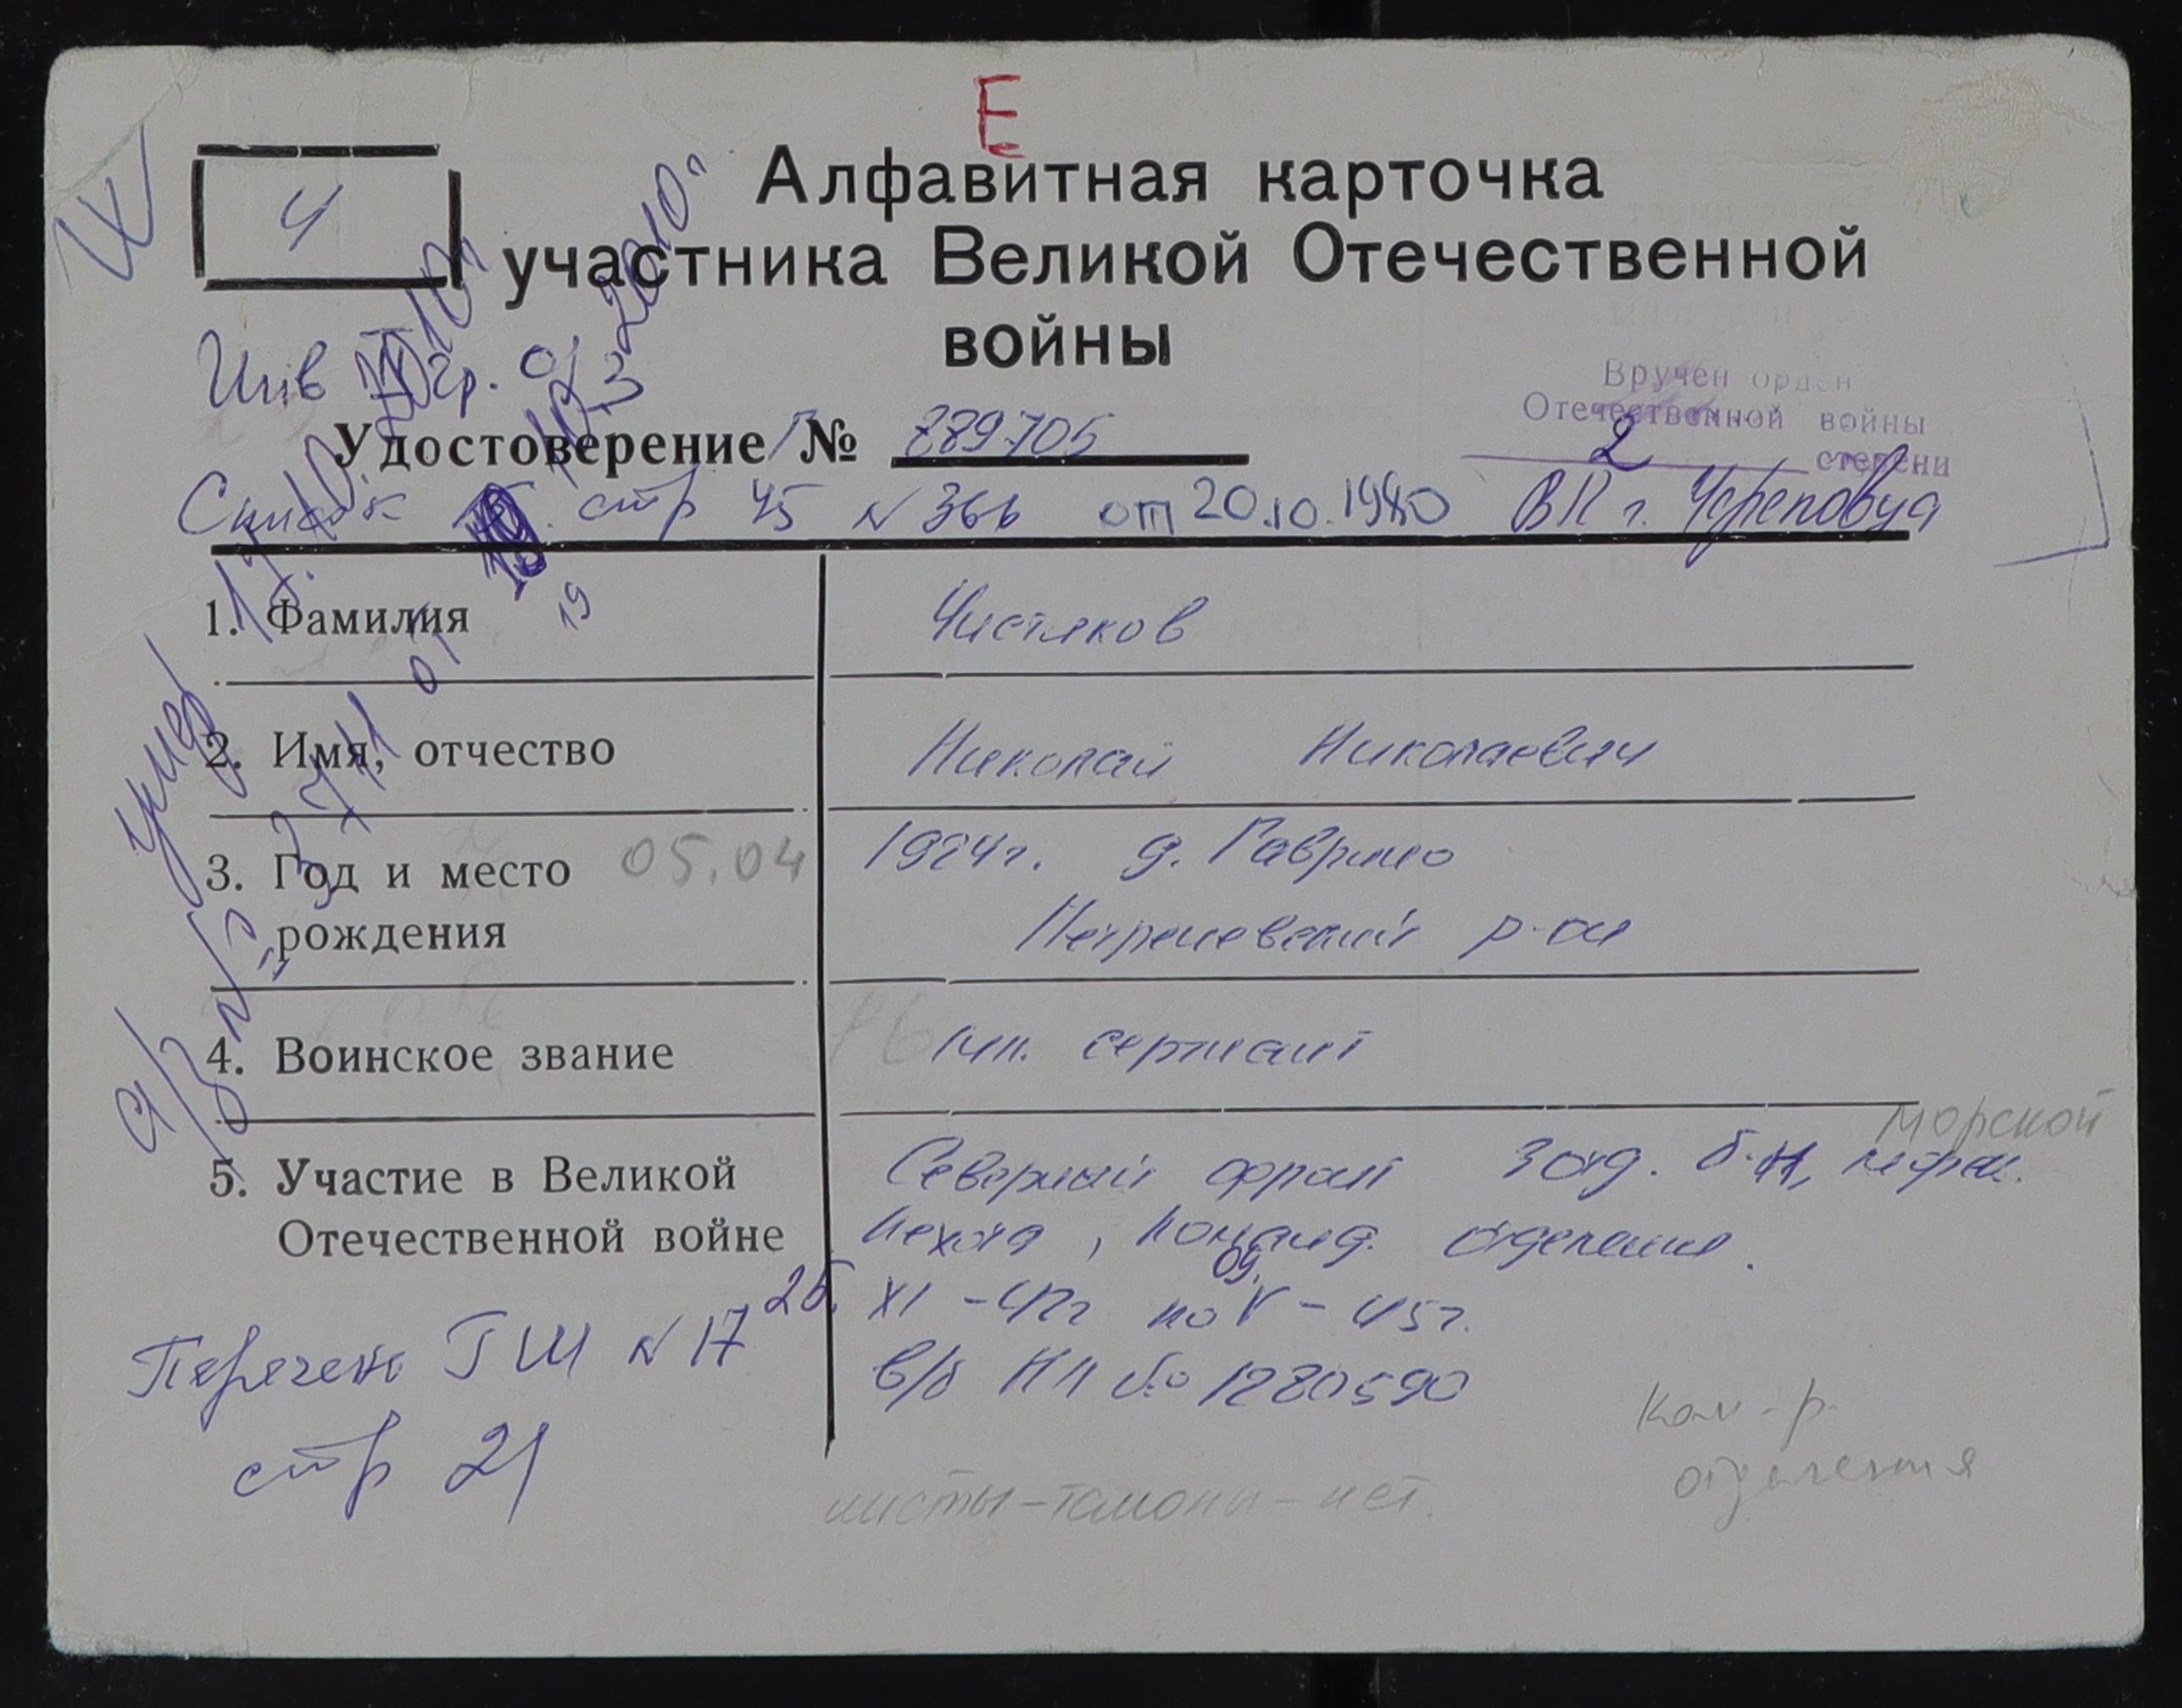 Е
Алфавитная карточка
участника Великой Отечественной
войны
4
Инв гр.
Вручен орден
Отечественной войны
2 степени
Удостоверение № 889705
Список стр 45 № 366 от 20.10.1980 ВК г. Череповца
19
1. Фамилия Чистяков
2. Имя, отчество Николай Николаевич
3. Год и место 05.04 1924г. д. Гаврино
рождения Петриневский р-он
4. Воинское звание мл. сержант
морской
5. Участие в Великой Северный фронт 3 отд. б-н,
Отечественной войне пехота, команд. отделения.
25. XI - 42г по 09. V - 45г.
в/б НП № 1280590
Перечень ГШ № 17
стр 21
ком-р
отделения
листы-талоны-нет.
умер
а/з №